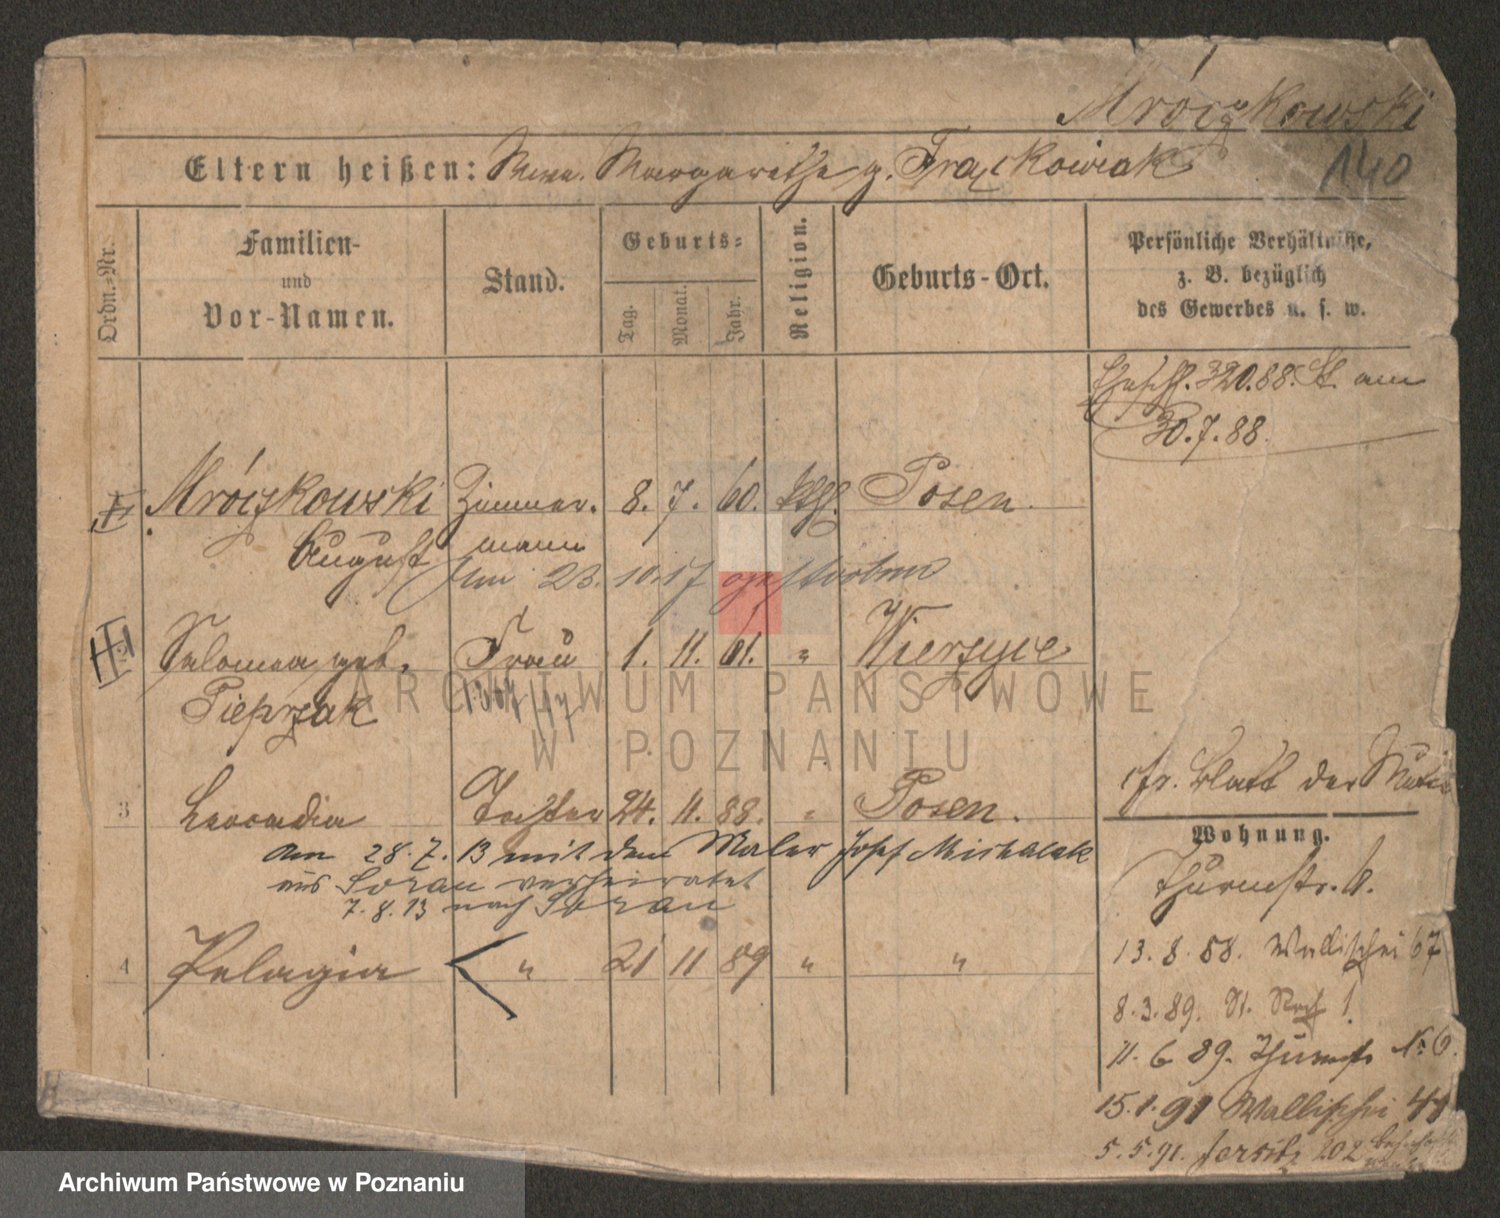 Mróczkowski
140
Eltern heißen: Margaretha g. Frąckowiak
Ordn.-Nr.
Familien-
und
Vor-Namen.
Stand.
Geburts-
Tag.
Monat.
Jahr.
Religion.
Geburts-Ort.
Persönliche Verhältnisse,
z. B. bezüglich
des Gewerbes u. s. w.
320.88. am
30.7.88.
Mróczkowski Zimmer- 8. 7. 60. kth. Posen.
August mann
Am 23. 10. 17 gestorben
2 Salomea geb. Frau 1. 11. 61. " Wierzyce
Pieprzak
cfr. Blatt der
3 Leocadia Tochter 24. 11. 88. " Posen.
am 28. 7. 13 mit dem Maler Josef Michalak
aus Sorau verheiratet
7. 8. 13 nach Sorau
4 Pelagia " 21 11 89 " "
Wohnung.
Thurmstr. 6.
13. 8. 88. Wallischei 67
8. 3. 89. St. Roch 1.
11. 6 89. Thurmstr No 6.
15. 1. 91 Wallischei 44
5. 5. 91. Jersitz 202
ARCHIWUM PAŃSTWOWE
W POZNANIU
Archiwum Państwowe w Poznaniu